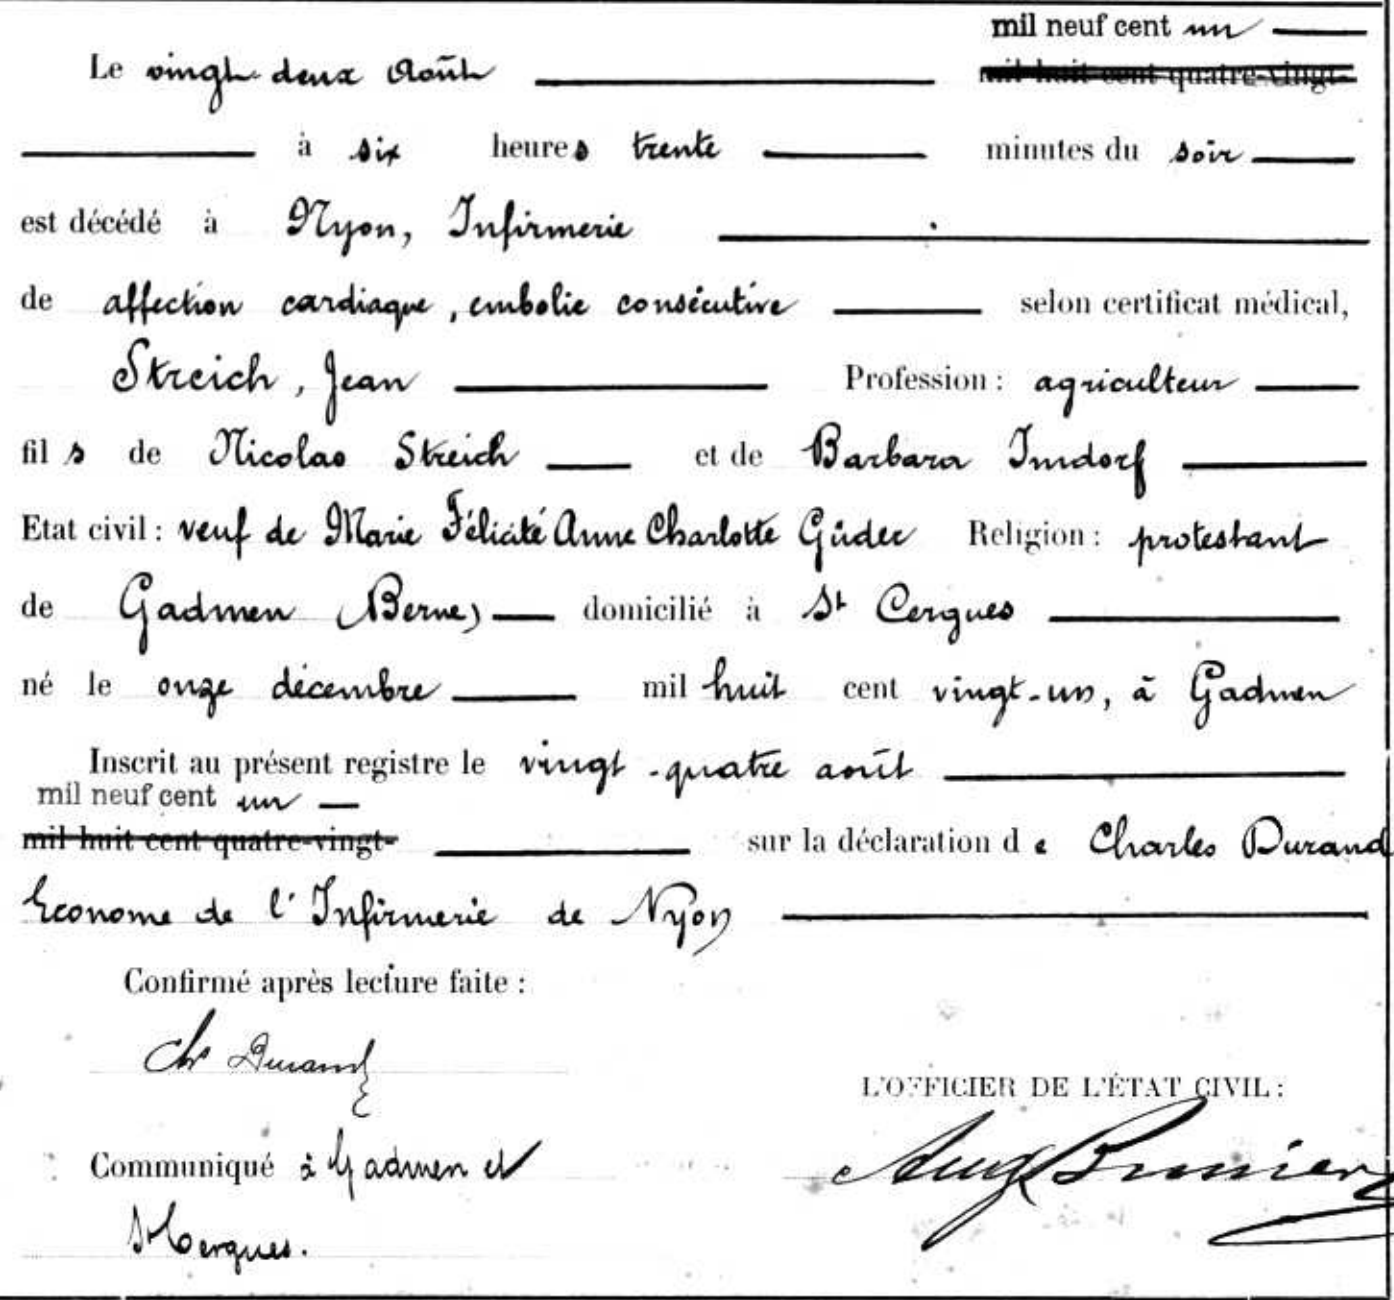 mil neuf cent un
Le vingt-deux Août mil huit cent quatre-vingt-
à six heures trente minutes du soir
est décédé à Nyon, Infirmerie
de affection cardiaque, embolie consécutive selon certificat médical,
Streich, Jean Profession : agriculteur
fils de Nicolas Streich et de Barbara Imdorf
Etat civil : veuf de Marie Félicité Anne Charlotte Güder Religion : protestant
de Gadmen (Berne) domicilié à St Cergues
né le onze décembre mil huit cent vingt-un, à Gadmen
Inscrit au présent registre le vingt-quatre août
mil neuf cent un
mil huit cent quatre-vingt- sur la déclaration de Charles Durand
Econome de l'Infirmerie de Nyon
Confirmé après lecture faite :
Chs Durand
L'OFFICIER DE L'ÉTAT CIVIL :
Communiqué à Gadmen et
St Cergues.